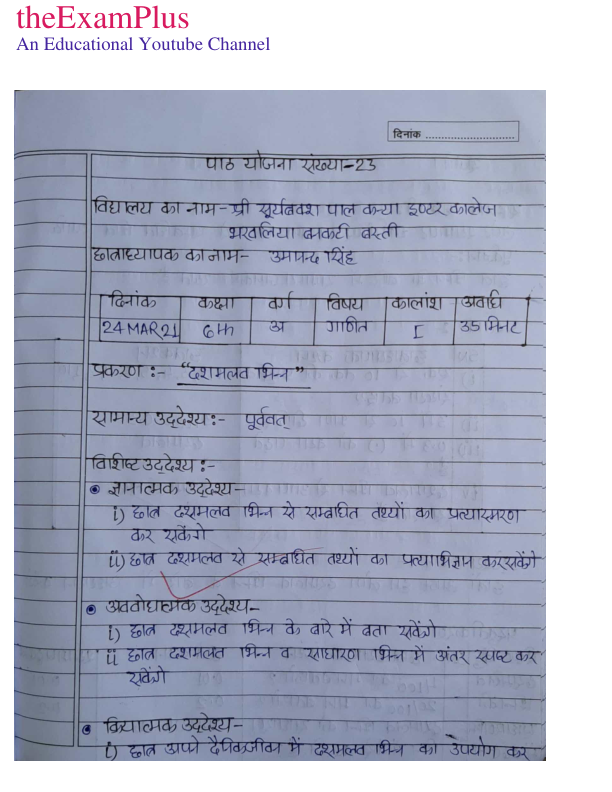 theExamPlus
An Educational Youtube Channel
दिनांक
पाठ योजना संख्या-23
विद्यालय का नाम- श्री सूर्यबक्श पाल कन्या इण्टर कालेज
बनकटी बस्ती
छात्राध्यापक का नाम- सिंह
दिनांक कक्षा वर्ग विषय कालांश अवधि
24 MAR 21 6th अ गणित I 35 मिनट
प्रकरण :- "दशमलव भिन्न"
सामान्य उद्देश्य :- पूर्ववत्
विशिष्ट उद्देश्य :-
ज्ञानात्मक उद्देश्य-
i) छात्र दशमलव भिन्न से सम्बंधित तथ्यों का प्रत्यास्मरण
कर सकेंगे
ii) छात्र दशमलव से सम्बंधित तथ्यों का प्रत्याभिज्ञान कर सकेंगे
अवबोधात्मक उद्देश्य-
i) छात्र दशमलव भिन्न के बारे में बता सकेंगे
ii छात्र दशमलव भिन्न व साधारण भिन्न में अंतर स्पष्ट कर
सकेंगे
क्रियात्मक उद्देश्य-
i) छात्र अपने दैनिकजीवन में दशमलव भिन्न का उपयोग कर